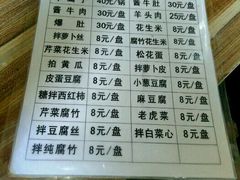 40元/锅 酱牛肚 30元/盘
酱牛肉 30元/盘 羊头肉 25元/盘
爆肚 30元/盘 花生米 8元/盘
拌萝卜丝 8元/盘 腐竹花生米 8元/盘
芹菜花生米 8元/盘 松花蛋 8元/盘
拍黄瓜 8元/盘 拌萝卜皮 8元/盘
皮蛋豆腐 8元/盘 小葱豆腐 8元/盘
糖拌西红柿 8元/盘 麻豆腐 8元/盘
芹菜腐竹 8元/盘 老虎菜 8元/盘
拌豆腐丝 8元/盘 拌白菜心 8元/盘
拌纯腐竹 8元/盘